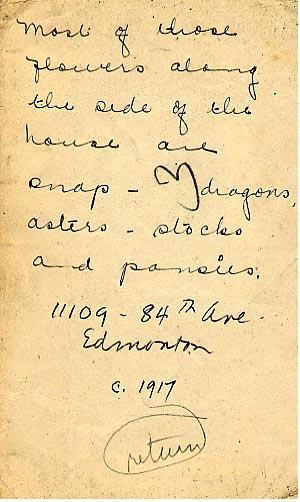 most of those
flowers along
the side of the
house are
snap - dragons,
asters - stocks
and pansies.
11109 - 84th Ave.
Edmonton
c. 1917
return